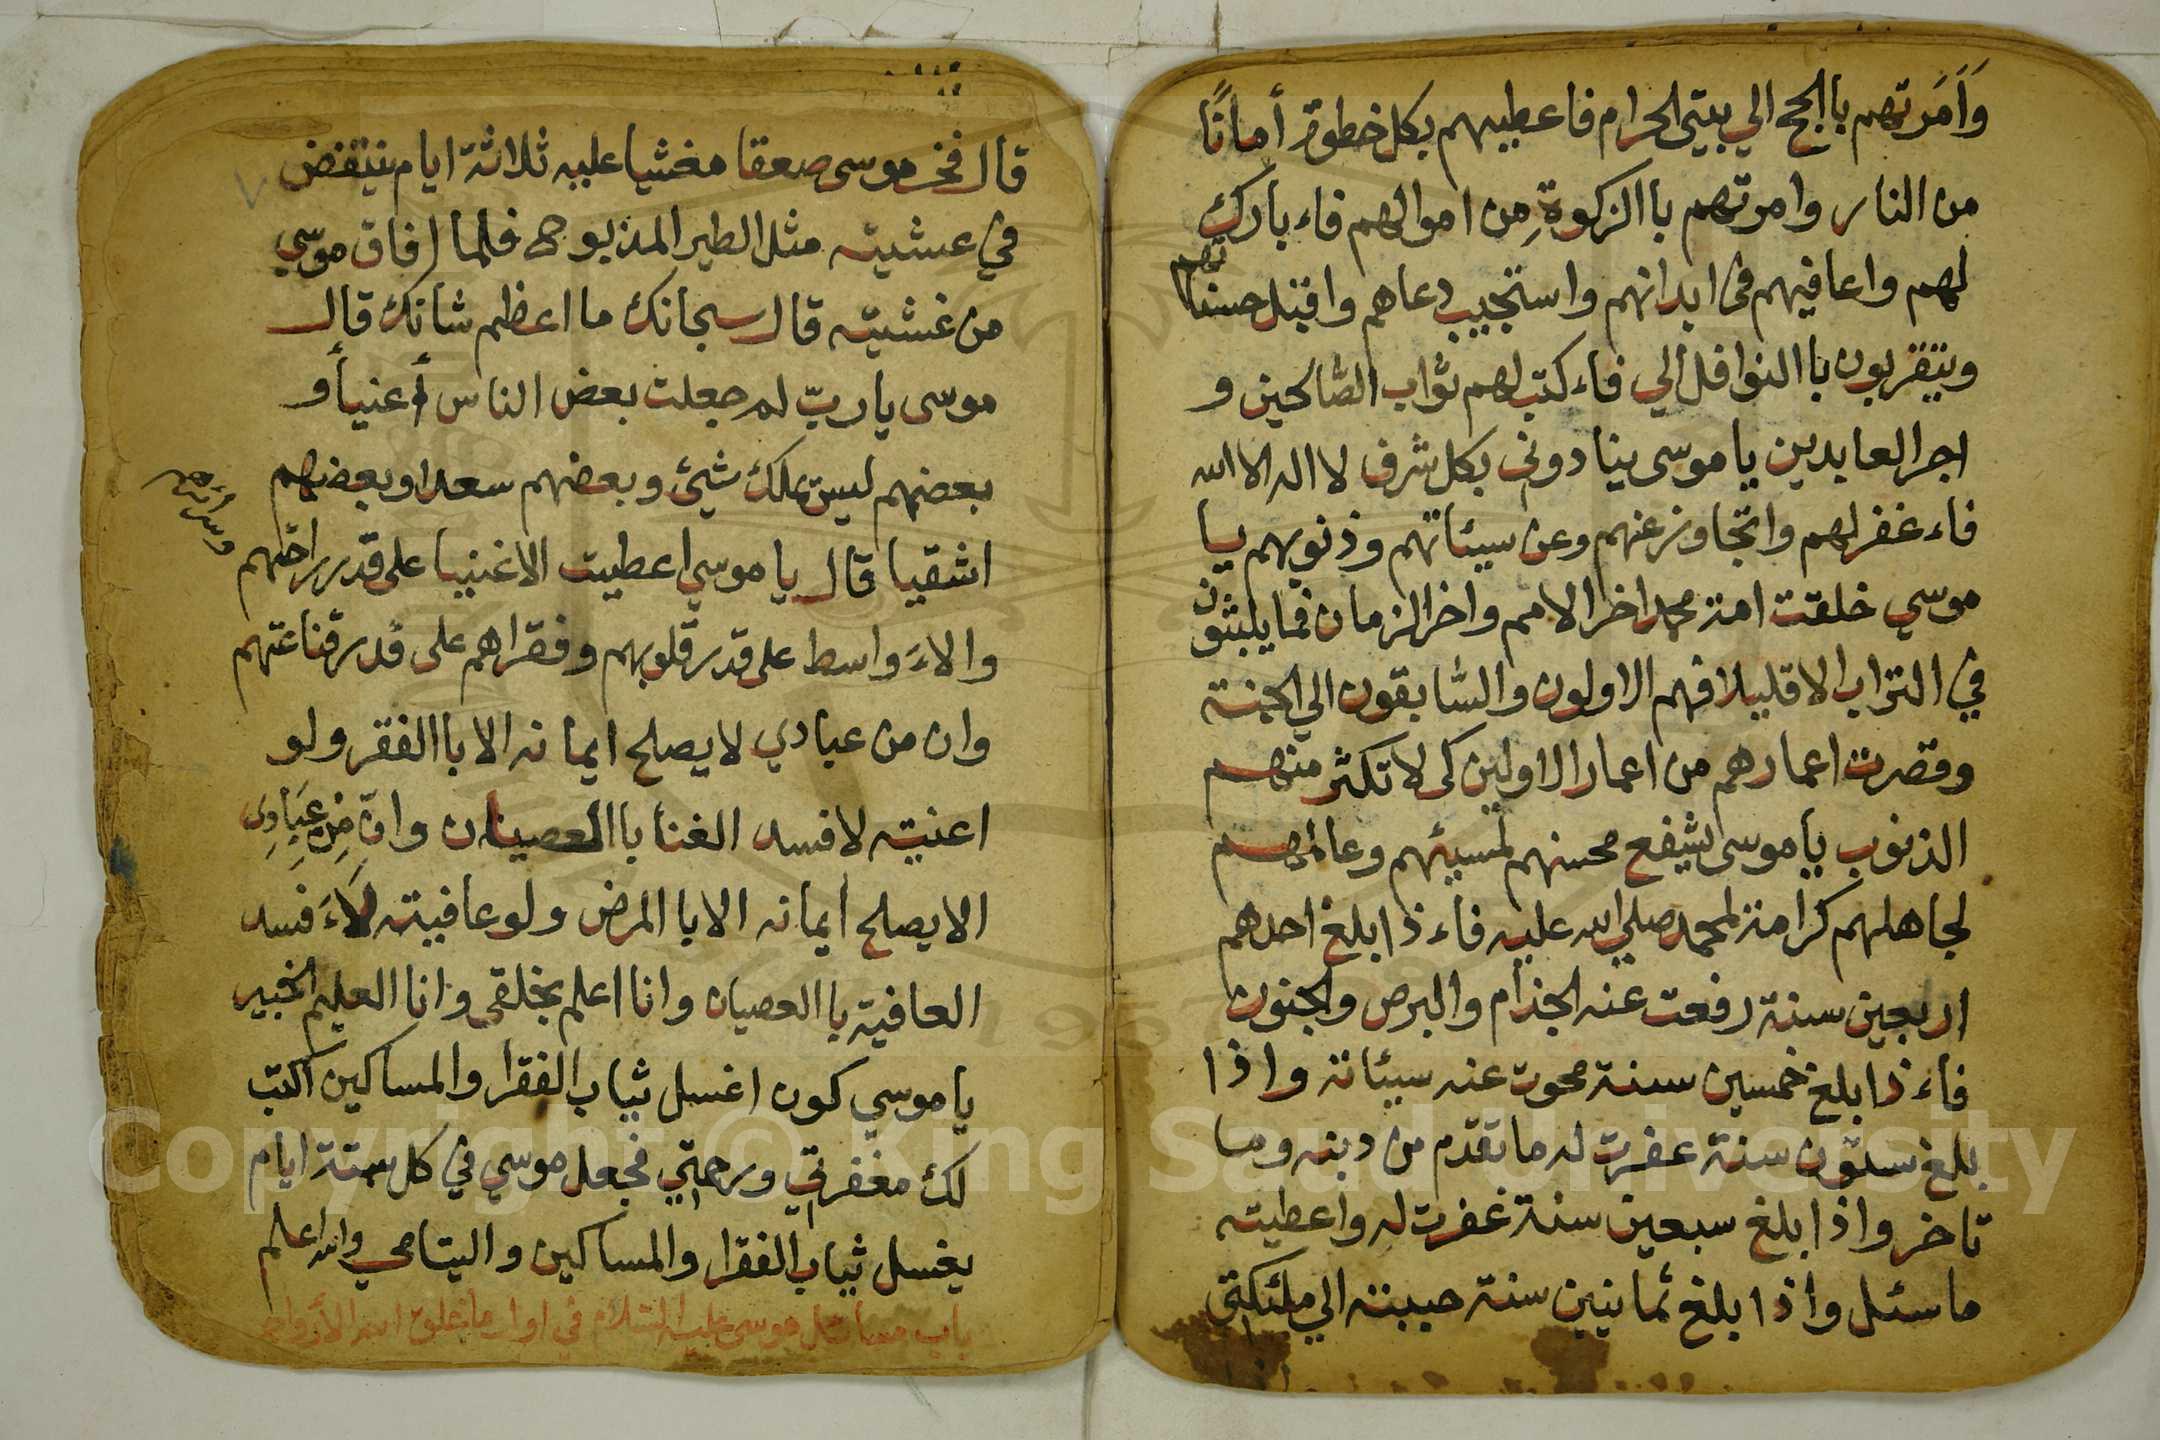 وَأَمَرتهم باالحج الي بيتي الحرام فاعطيهم بكل خطوة أمانًا
من النار وامرتهم باالزكوةِ مِن اموالهم فاء بارك
لهم واعافيهم في ابدانهم واستجيب دعاهم واقبل حسناتهم
ويتقربون باالنوافل الي فاء كتب لهم ثواب الصّالحين و
اجر العابدين يا موسى ينادوني بكل شرف لا اله الا الله
فاء غفر لهم واتجاوز عنهم وعن سيئاتهم وذنوبهم يا
موسي خلقت امة محمد اخر الامم واخر الزمان فما يلبثون
في التراب الا قليلا فهم الاولون والسّابقون الي الجنة
وقصرت اعمارهم من اعمار الاولين كى لا تكثر منهم
الذنوب يا موسى يشفع محسنهم لمسيئهم وعالمهم
لجاهلهم كرامة لمحمد صلي الله عليه فاء ذا بلغ احدهم
اربعين سنة رفعت عنه الجذام والبرص والجنون
فاء ذا بلغ خمسين سنة محوت عنه سيئاته واذا
بلغ ستون سنة عفرت له ما تقدم من دبنه وما
تاخر واذا بلغ سبعين سنة غفرت له واعطيته
ما سئل واذا بلغ ثمانين سنة حببته الي ملئكتي
قال فخر موسى صعقا مغشيا عليه ثلاثة ايام ينتفض
في عشيته مثل الطير المذبوح فلما افاق موسي
من غشيته قال سبحانك ما اعظم شانك قال
موسى يا ربّ لم جعلت بعض الناس أعنيأ و
بعضهم ليس يملك شيئ وبعضهم سعدا وبعضهم
اشقيا قال يا موسي اعطيت الاغنيا على قدر
والاءَ واسط على قدر قلوبهم وفقراهم على قدر قناعتهم
وان من عبادي لا يصلح ايمانه الا باالفقر ولو
اعنيته لافسد الغنا باالعصيان وانّ مِن عِبَادِى
الا يصلح ايمانه الا باالمرض ولو عافيته لاءَ فسد
العافية باالعصيان وانا اعلم بخلقى وانا العليم الخبير
يا موسي كون اغسل ثياب الفقرا والمساكين اكتب
لك مغفرتي ورحمتي فجعل موسي في كل ستة ايام
يغسل ثياب الفقرا والمساكين واليتامي والله اعلم
باب مسائل موسى عليه السّلام في اول ما خلق الله الأرواح